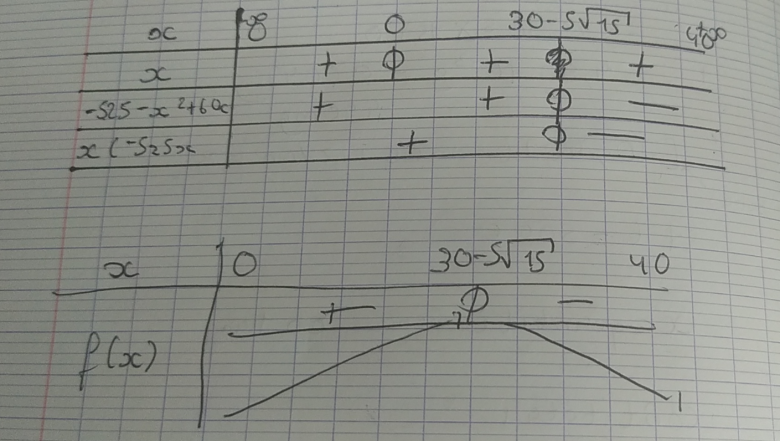 x -∞ 0 30-5√15 +∞
x + 0 + + 
-525-x²+60x + + 0 —
x(-525x + 0 —
x 0 30-5√15 40
+ 0 —
f(x)